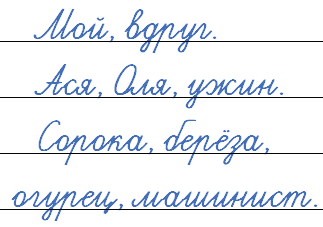 Мой, вдруг.
Ася, Оля, ужин.
Сорока, берёза,
огурец, машинист.